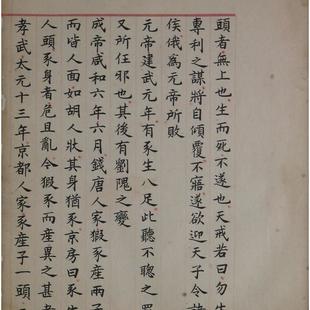 頭者無上也生而死不遂也天戒若曰勿生
專利之謀將自傾覆不寤遂欲迎天子令諸
侯俄爲元帝所敗
元帝建武元年有豕生八足此聽不聰之罰
又所任邪也其後有劉隗之變
成帝咸和六年六月錢唐人家猳豕産兩子
而皆人面如胡人狀其身猶豕京房曰豕生
人頭豕身者危且亂今猳豕而産異之甚者
孝武太元十三年京都人家豕産子一頭二